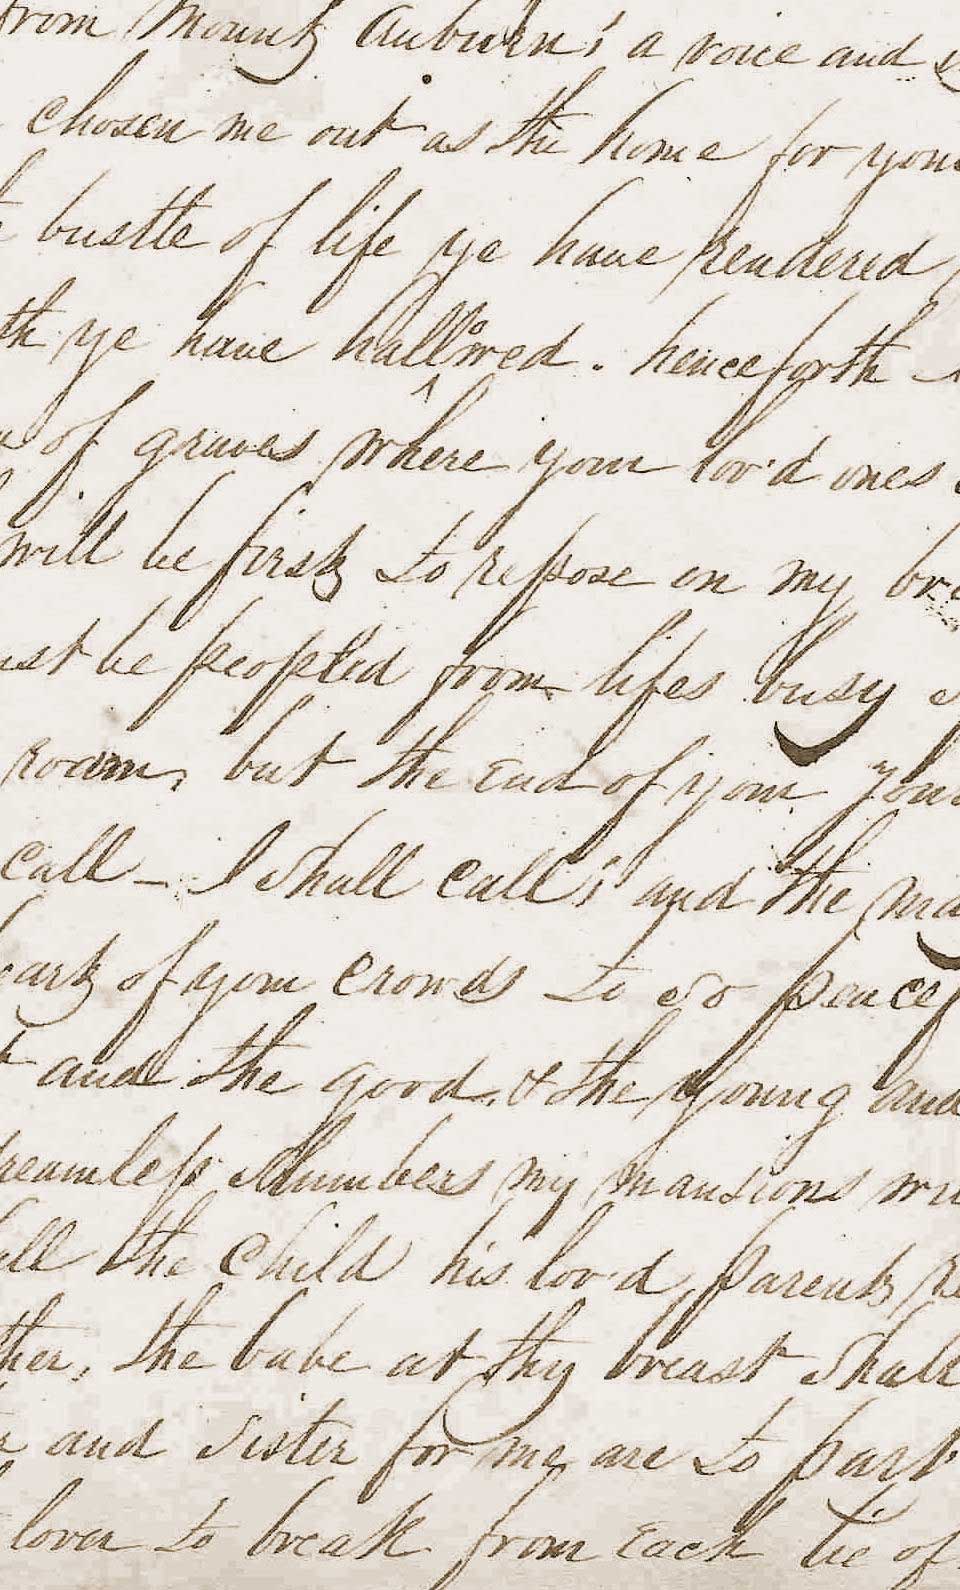 from Mount Auburn's a voice and
chosen me out as the home for your
bustle of life ye have rendered
ye have hallowed. henceforth
of graves where your lov'd ones
will be first to repose on my
be peopled from lifes busy
roam, but the end of your
call – I shall call; and the
of your crowds to so
and the good, & the young and
slumbers my mansions
the child his lov'd parent
the babe at thy breast shall
and sister for me are to part
lover to break from each tie of